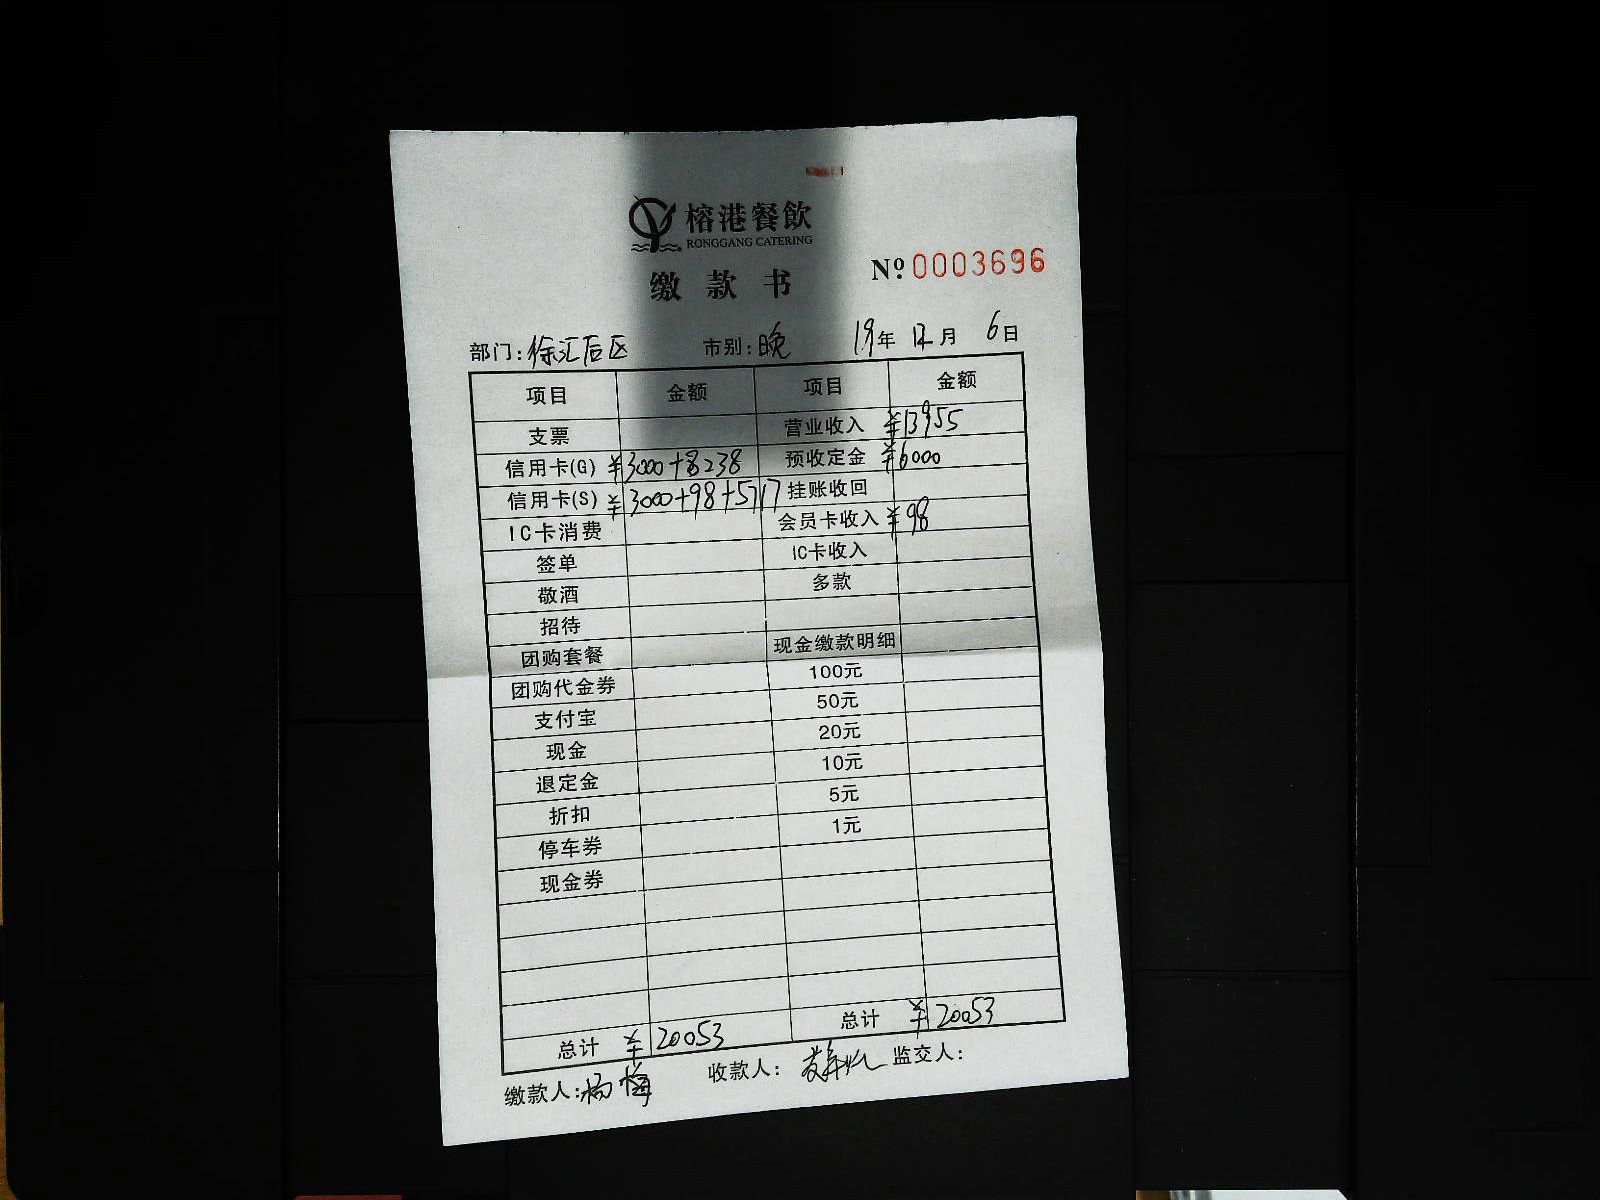 榕港餐飲
RONGGANG CATERING
缴款书
Nº 0003696
部门:徐汇后区 市别:晚 19年12月6日
项目 金额 项目 金额
支票 营业收入 ¥13955
信用卡(G) ¥3000+8238 预收定金 ¥6000
信用卡(S) ¥3000+98+5717 挂账收回
IC卡消费 会员卡收入 ¥98
签单 IC卡收入
敬酒 多款
招待
团购套餐 现金缴款明细
团购代金券 100元
支付宝 50元
现金 20元
退定金 10元
折扣 5元
停车券 1元
现金券
总计 ¥20053 总计 ¥20053
缴款人:杨梅 收款人: 监交人: